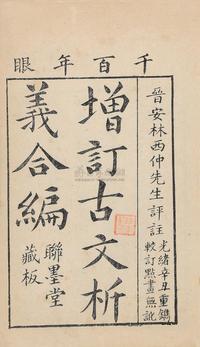 千百年眼
晉安林西仲先生評註
光緒辛丑重鐫
較訂點畫無訛
增訂古文析
義合編
聯墨堂
藏板